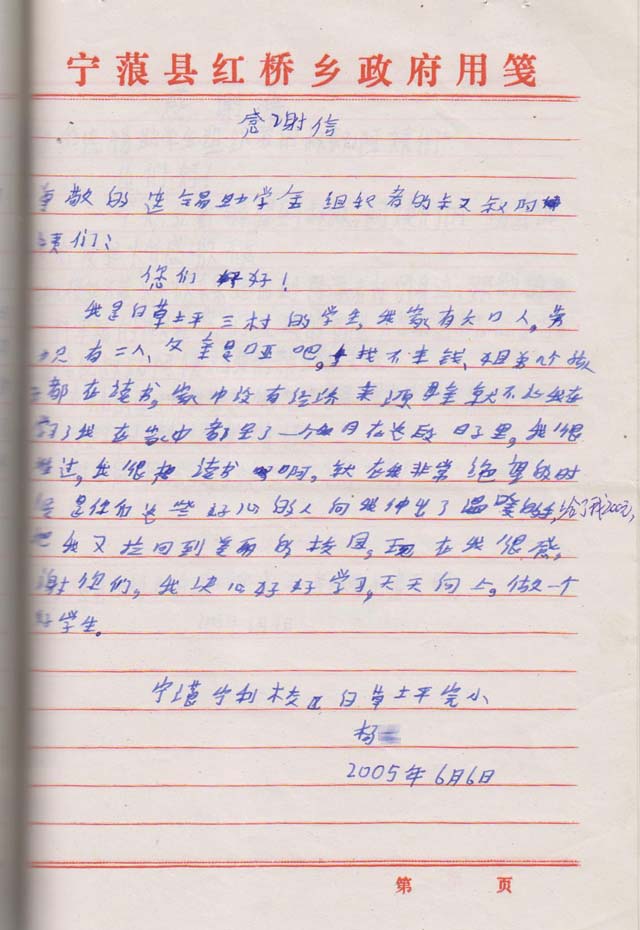 宁蒗县红桥乡政府用笺
感谢信
尊敬的连锡助学金组织者的叔叔阿姨
们:
您们好!
我是白草土平三村的学生,我家有六口人,劳
只有二人,父是哑吧,找不来钱,姐弟几个孩
子都在读书,家中没有经济来源
了我在家中呆了一个月在这段日子里,我很
难过,我很想读书啊,就在我非常绝望的时
候是你们这些好心的人向我伸出了温暖的手,给了我200元,
把我又拉回到美丽的校园,现在我很感
谢您们,我决心好好学习,天天向上。做一个
好学生。
宁蒗宁利校区白草土平完小
杨
2005年6月6日
第 页